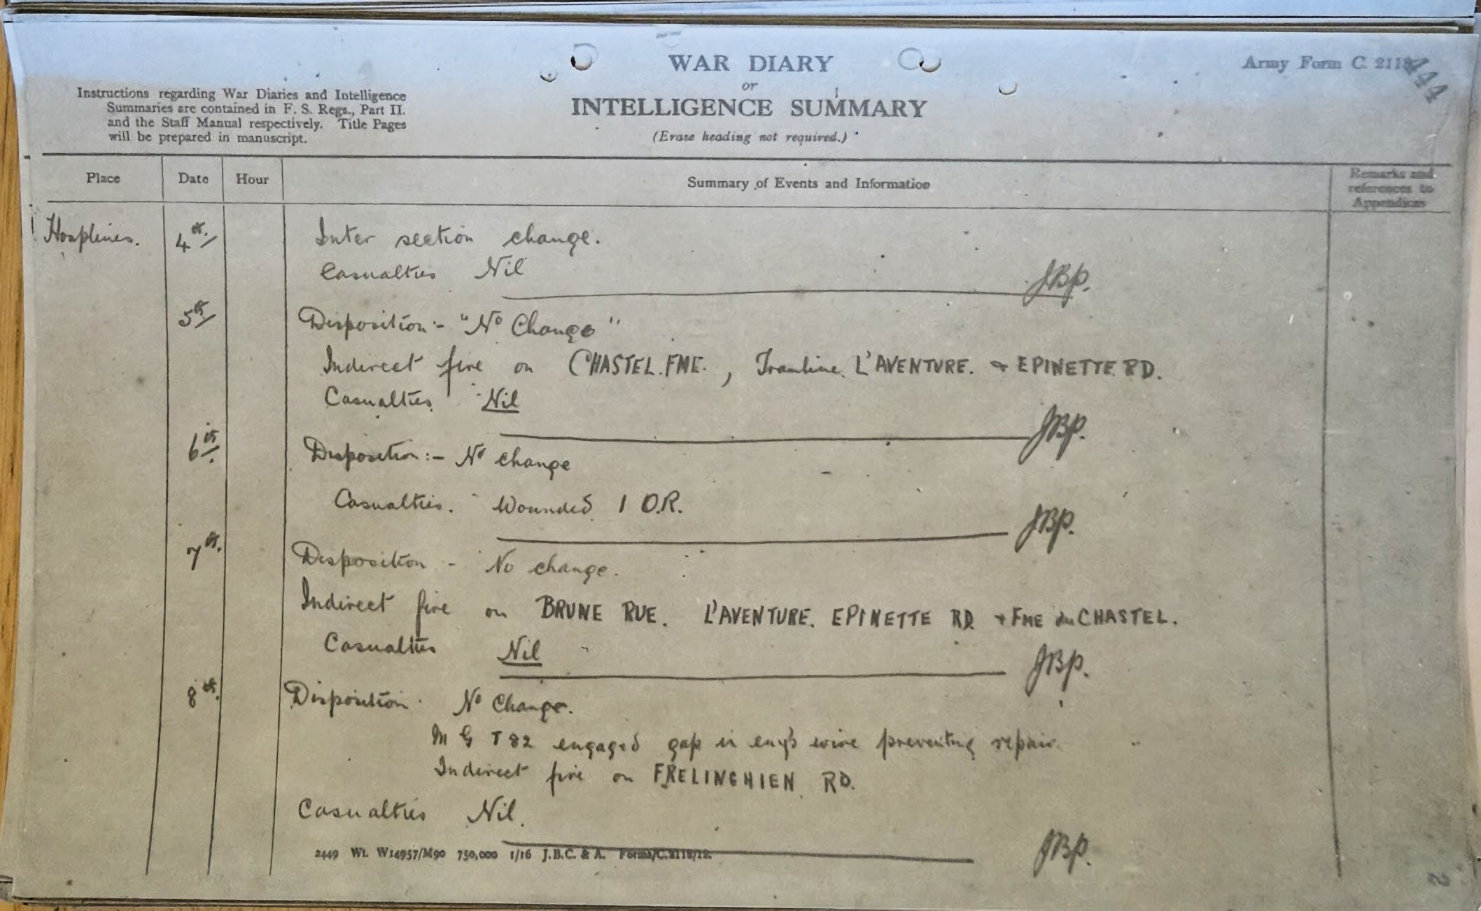 WAR DIARY
or
INTELLIGENCE SUMMARY
(Erase heading not required.)
Army Form C. 2118
444
Instructions regarding War Diaries and Intelligence
Summaries are contained in F. S. Regs., Part II.
and the Staff Manual respectively. Title Pages
will be prepared in manuscript.
Place Date Hour Summary of Events and Information Remarks and references to Appendices
Houplines. 4th. Inter section change.
Casualties Nil
JBP.
5th Disposition:- "No Change"
Indirect fire on CHASTEL. FME., Tramline. L'AVENTURE. & EPINETTE RD.
Casualties Nil
JBP.
6th Disposition:- No change
Casualties. Wounded 1 O.R.
JBP.
7th. Disposition - No change.
Indirect fire on BRUNE RUE. L'AVENTURE. EPINETTE RD & FME du CHASTEL.
Casualties Nil
JBP.
8th. Disposition. No Change.
M G T 82 engaged gap in eny's wire preventing repair.
Indirect fire on FRELINGHIEN RD.
Casualties Nil.
JBP.
2449 Wt. W14957/M90 750,000 1/16 J.B.C. & A. Forms/C.2118/12.
2